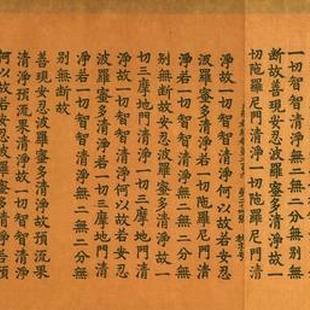 一切智智清淨無二無二分無別無
斷故善現安忍波羅蜜多清淨故一
切陁羅尼門清淨一切陁羅尼門清
淨故一切智智清淨何以故若安忍
波羅蜜多清淨若一切陁羅尼門清
淨若一切智智清淨無二無二分無
別無斷故安忍波羅蜜多清淨故一
切三摩地門清淨一切三摩地門清
淨故一切智智清淨何以故若安忍
波羅蜜多清淨若一切三摩地門清
淨若一切智智清淨無二無二分無
別無斷故
善現安忍波羅蜜多清淨故預流果
清淨預流果清淨故一切智智清淨
何以故若安忍波羅蜜多清淨若預